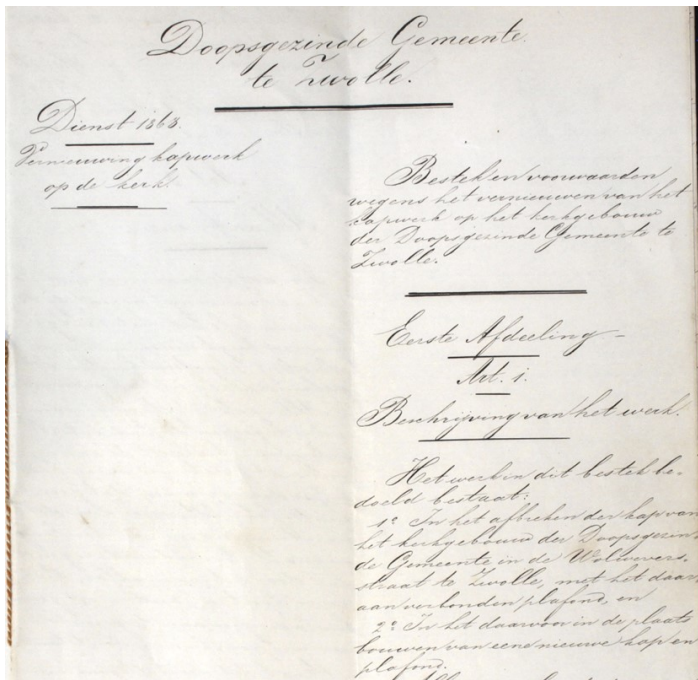 Doopsgezinde Gemeente
te Zwolle.
Dienst 1868.
Vernieuwing kapwerk
op de kerk.
Bestek en voorwaarden
wegens het vernieuwen van het
kapwerk op het kerkgebouw
der Doopsgezinde Gemeente te
Zwolle.
Eerste Afdeeling
Art. 1.
Beschrijving van het werk.
Het werk in dit bestek be-
doeld bestaat:
1e In het afbreken der kap van
het kerkgebouw der Doopsgezin-
de Gemeente in de Wolwevers-
straat te Zwolle, met het daar-
aan verbonden plafond, en
2e In het daarvoor in de plaats
bouwen van eene nieuwe kap en
plafond.